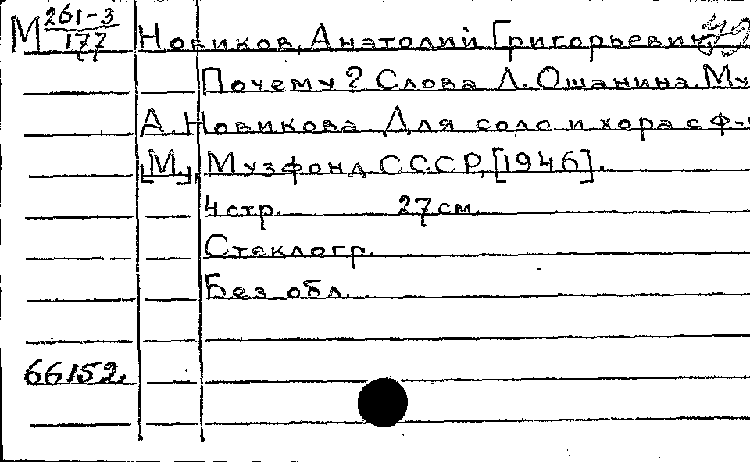 М 261-3/177 Новиков, Анатолий Григорьевич
Почему? Слова Л. Ошанина. Му
А. Новикова. Для соло и хора с ф-
[М.], Музфонд СССР, [1946].
4 стр. 27 см.
Стеклогр.
Без обл.
66152.